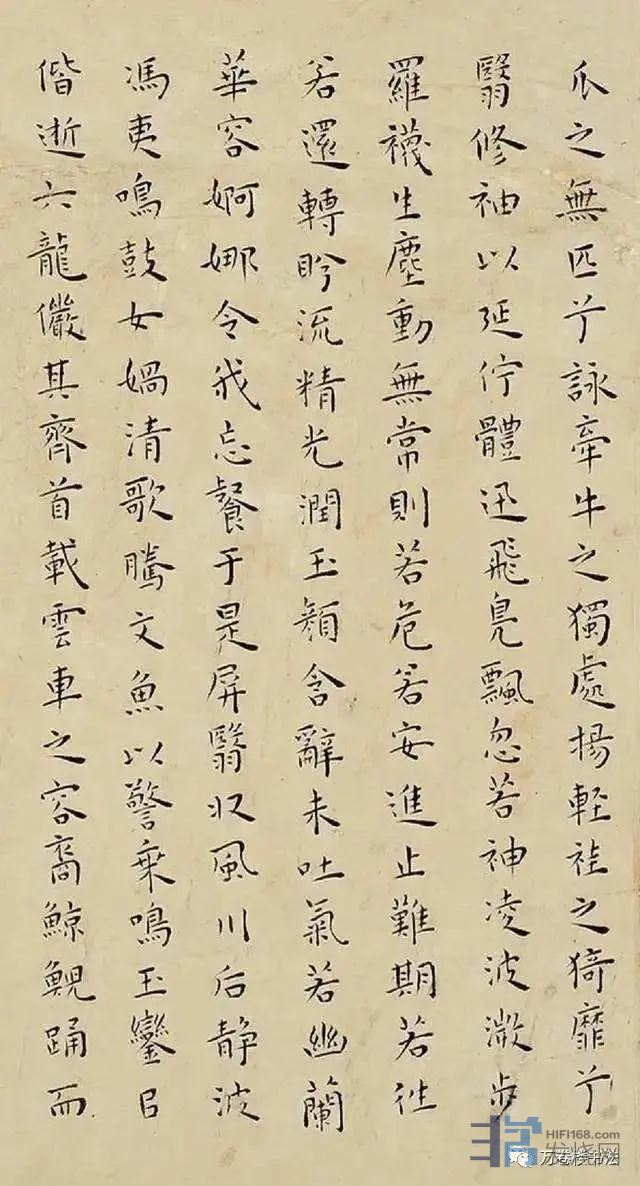 爪之無匹兮詠牽牛之獨處揚軽袿之猗靡兮
翳修袖以延佇體迅飛鳧飄忽若神凌波微步
羅襪生塵動無常則若危若安進止難期若往
若還轉眄流精光潤玉顏含辭未吐氣若幽蘭
華容婀娜令我忘餐于是屏翳収風川后靜波
馮夷鳴鼓女媧清歌騰文魚以警乗鳴玉鑾㠯
偕逝六龍儼其齊首載雲車之容裔鯨鯢踊而
非常
HIFI168.com
发烧网
万卷楼书法